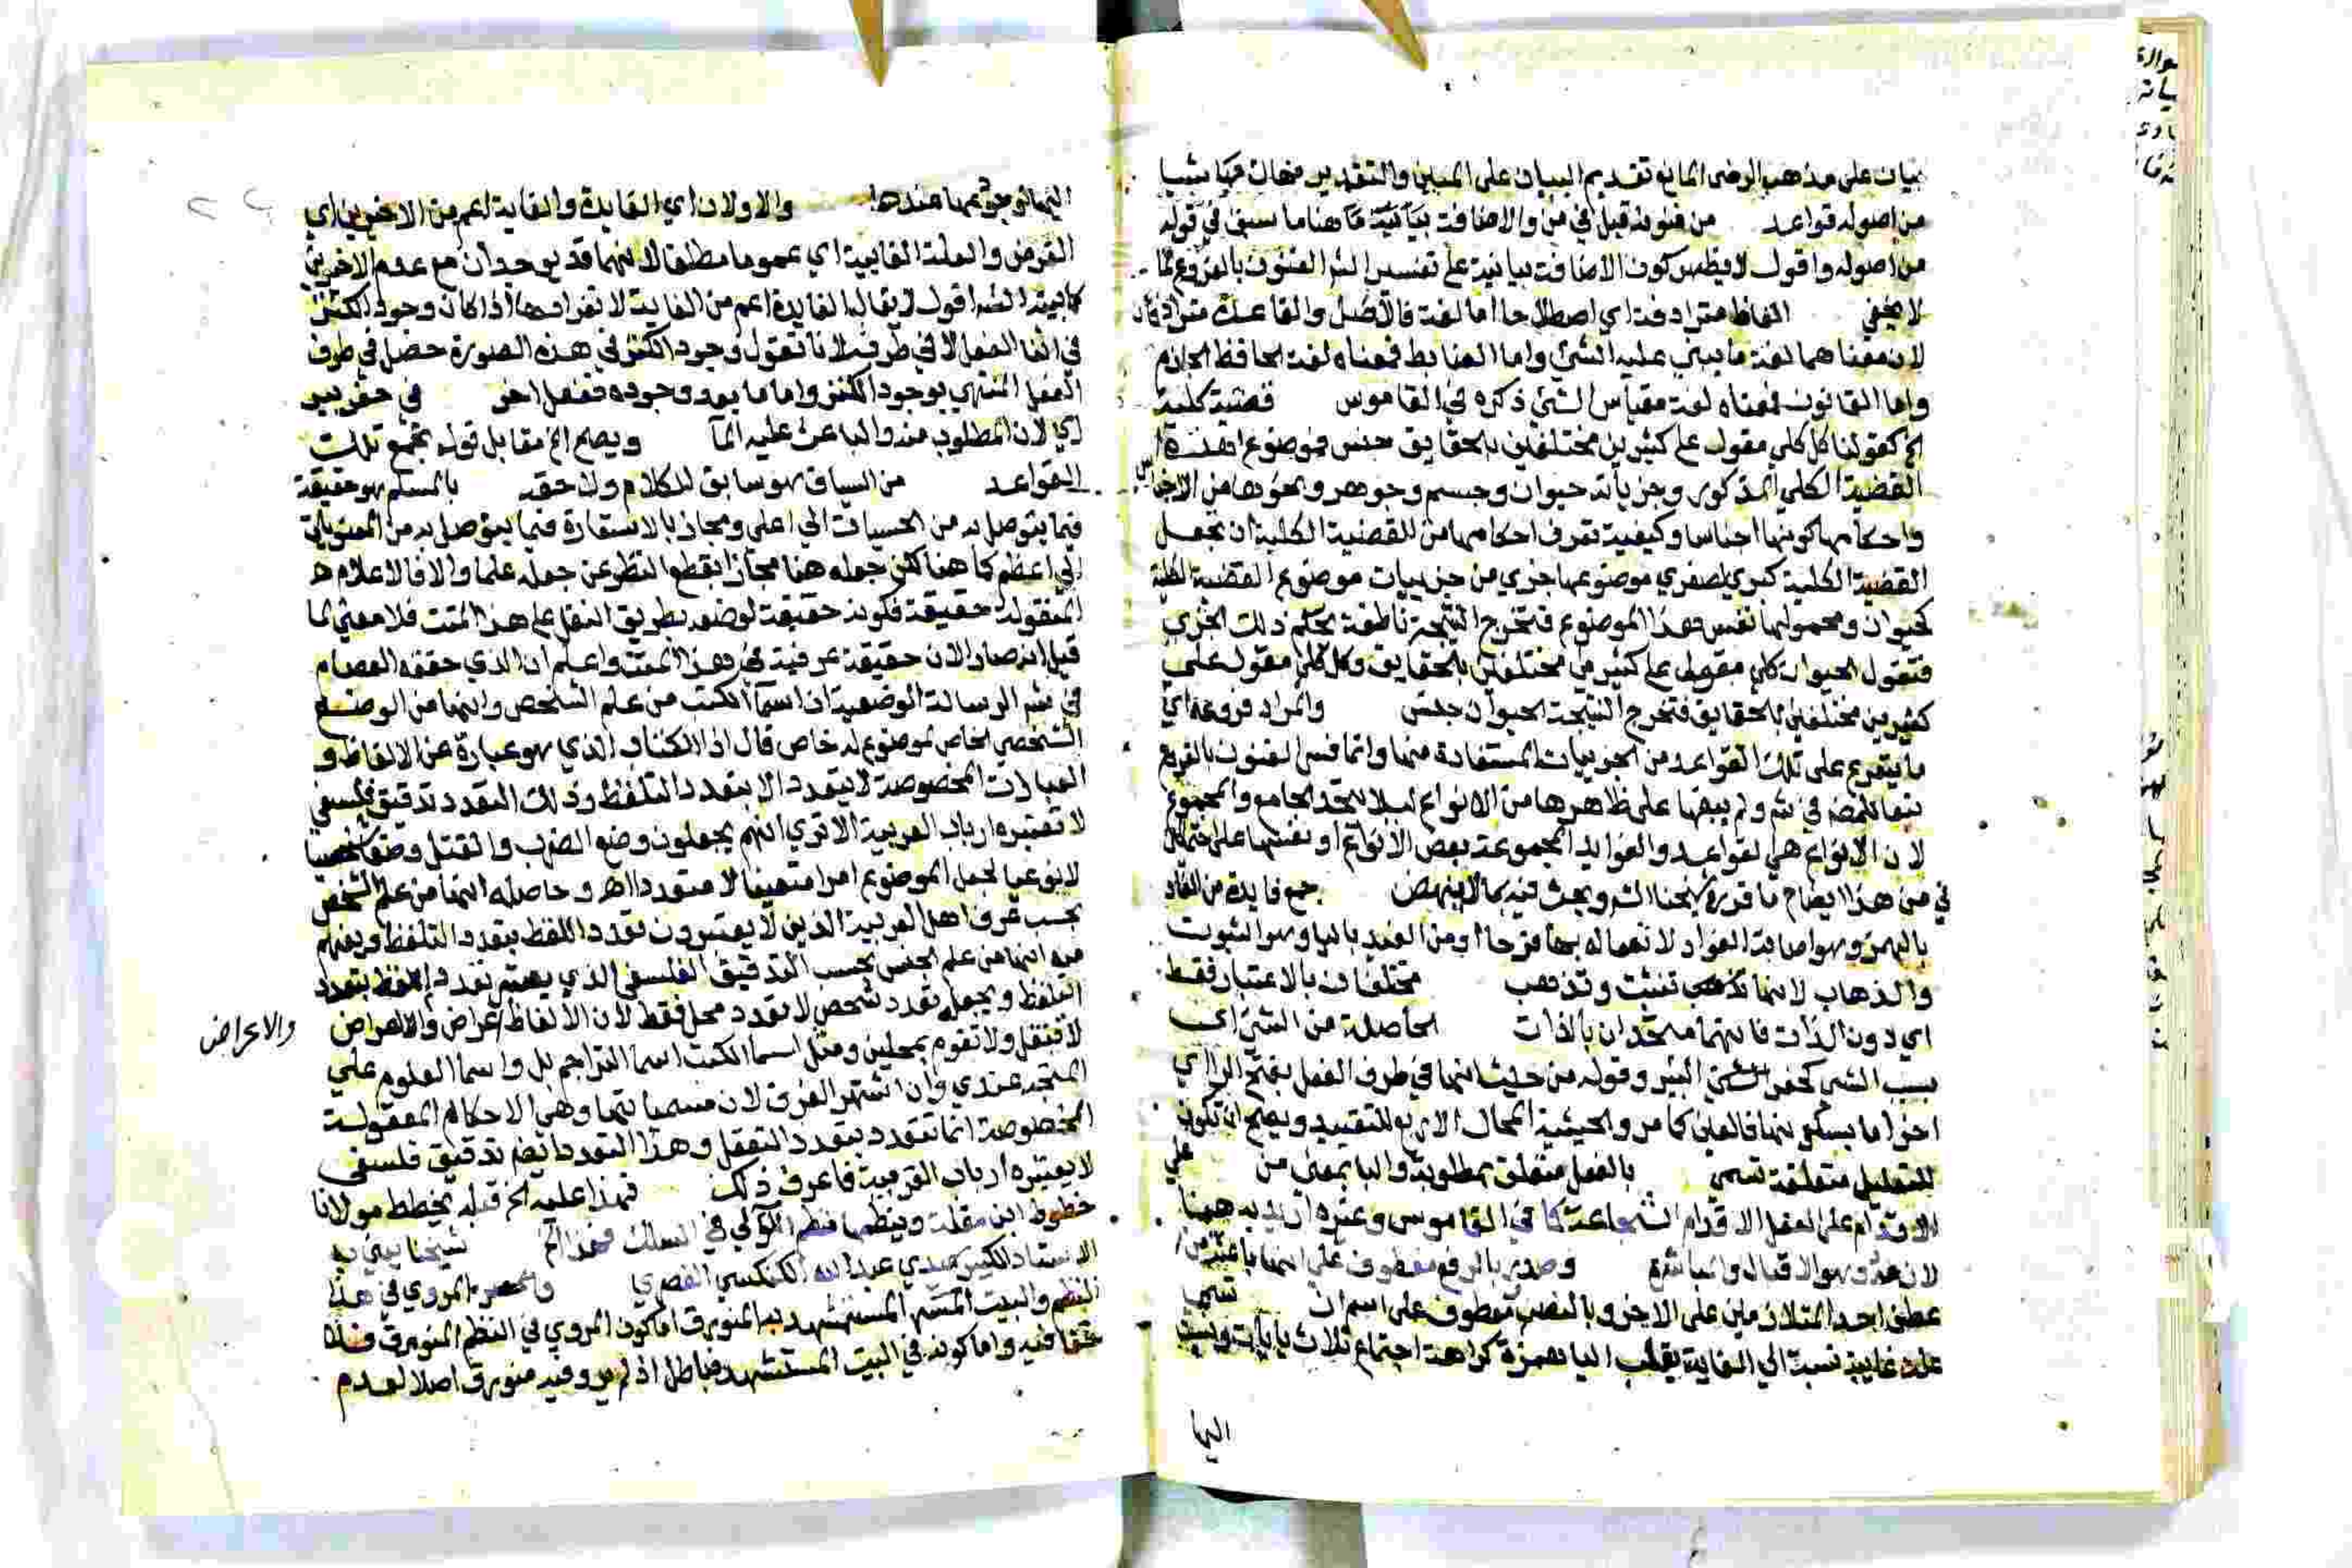 بيان على مذهب الرضى المانع تقديم البيان على المبين والتقدير
من اصوله قواعد من فنونه قيل في من والاضافة بيانية ما هنا ما سبق في قوله
من اصوله واقول لا يظهر كون الاضافة بيانية على تفسير الش الفنون بالفروع كما
لا يخفى الفاظ مترادفة اي اصطلاحا اما لغة فالاصل والقاعدة مترادفان
لان معناهما لغة ما يبنى عليه الشي واما الضابط فمعناه لغة الحافظ الحازم
واما القانون فمعناه لغة مقياس الشي ذكره في القاموس قضية كلية
الخ كقولنا كل كلي مقول على كثيرين مختلفين بالحقايق جنس فموضوع هذه
القضية الكلي المذكور وجزياته حيوان وجسم وجوهر ونحوها من الاجناس
واحكامها كونها اجناسا وكيفية تعرف احكامها من القضية الكلية ان تجعل
القضية الكلية كبرى لصغرى موضوعها جزي من جزييات موضوع القضية الكلية
كحيوان ومحمولها نفس هذا الموضوع فتخرج النتيجة ناطقة بحكم ذلك الجزي
فتقول الحيوان كلي مقول على كثيرين مختلفين بالحقايق وكل كلي مقول على
كثيرين مختلفين بالحقايق فتخرج النتيجة الحيوان جنس والمراد فروعه اي
ما يتفرع على تلك القواعد من الجزييات المستفادة منها وانما فسر الفنون بالفروع
تبعا للمص في ش ولم يبقها على ظاهرها من الانواع ليلا يتحد الجامع والمجموع
لان الانواع هي القواعد والفوايد المجموعة بعض الانواع او نفسها على
في من هذا ايضاح ما قرره شيخنا الش وبحث فيه بما لا ينهض جمع فايدة من الفاد
بالهمز وهو اصابة الفواد لا من الفيد باليا وهو الثبوت
والذهاب لانها تثبت وتذهب مختلفان بالاعتبار فقط
اي دون الذات فانهما متحدان بالذات الحاصلة من الشي اي
بسبب الشي كحفر البير وقوله من حيث انها في طرف الفعل بفتح الرا اي
اخر اما بسكونها فالعين كما مر والحيثية المحال الاربع للتقييد ويصح ان تكون
للتعليل متعلقة تسمى بالفعل متعلق بمطلوبة والبا بمعنى من على
الاقدام على الفعل الاقدام الشجاعة كما في القاموس وغيره اريد به ههنا
لازمه وهو الاقبال والمباشرة وصدر بالرفع معطوف على انها
عطف احد المتلازمين على الاخر وبالنصب معطوف على اسم ان تسمى
علة غايية نسبة الى الغاية بقلب اليا همزة كراهة اجتماع ثلاث يايات
اليها
والاولان اي الفايدة والغاية اعم من الاخيرين اي
الغرض والعلة الغايية اي عموما مطلقا لانهما قد يوجدان مع عدم الاخيرين
كما بينه الش اقول لا يقال الفايدة اعم من الغاية لانفرادها اذا كان وجود الكنز
في اثنا الفعل لا في طرفه لانا نقول وجود الكنز في هذه الصورة حصل في طرف
الفعل المنتهي بوجود الكنز واما ما بعد وجوده ففعل اخر في حفر بير
اي لان المطلوب منه والباعث عليه الما ويصح الخ مقابل قوله بجمع تلك
القواعد من السياق هو سابق الكلام ولاحقه بالسلم هو حقيقة
فيما يتوصل به من الحسيات الى اعلى ومجاز بالاستعارة فيما يتوصل به من المعنويات
الى اعظم كما هنا لكن جعله هنا مجازا بقطع النظر عن جعله علما والا فالاعلام
المنقولة حقيقة فكونه حقيقة لوضعه بطريق النقل على هذا المتن فلا معنى لما
قيل انه صار الان حقيقة عرفية في هذا المتن واعلم ان الذي حققه العصام
في ش الرسالة الوضعية ان اسما الكتب من علم الشخص وانها من الوضع
الشخصي الخاص لموضوع له خاص قال اذ الكتاب الذي هو عبارة عن الالفاظ و
العبارات المخصوصة لا يتعدد الا بتعدد التلفظ وذلك التعدد تدقيق فلسفي
لا تعتبره ارباب العربية الا ترى انهم يجعلون وضع الضرب والقتل وضعا شخصيا
لا نوعيا لجعل الموضوع امرا متعينا لا متعددا اهـ وحاصله انها من علم الشخص
بحسب عرف اهل العربية الذين لا يعتبرون تعدد اللفظ بتعدد التلفظ ويفهم
منه انها من علم الجنس بحسب التدقيق الفلسفي الذي يعتبر تعدد اللفظ بتعدد
التلفظ ويجعله تعدد شخص لا تعدد محل فقط لان الالفاظ اعراض والاعراض
والاعراض
لا تنتقل ولا تقوم بمحلين ومثل اسما الكتب اسما التراجم بل واسما العلوم على
المتجه عندي وان اشتهر الفرق لان مسمياتها وهي الاحكام المعقولة
المخصوصة انما تتعدد بتعدد التعقل وهذا التعدد ايضا تدقيق فلسفي
لا يعتبره ارباب العربية فاعرف ذلك فهذا عليه الخ قبله يخطط مولانا
خطوط ابن مقلة وينظمها نظم اللآلي في السلك فهذا الخ شيخنا يعني به
الاستاذ الكبير سيدي عبد الله الكنكسي القصري والمروي في هذا
النظم والبيت المستشهد به المنورق اما كون المروي في النظم المنورق
فيه واما كونه في البيت المستشهد فباطل اذ لم يرو فيه منورق اصلا لعدم